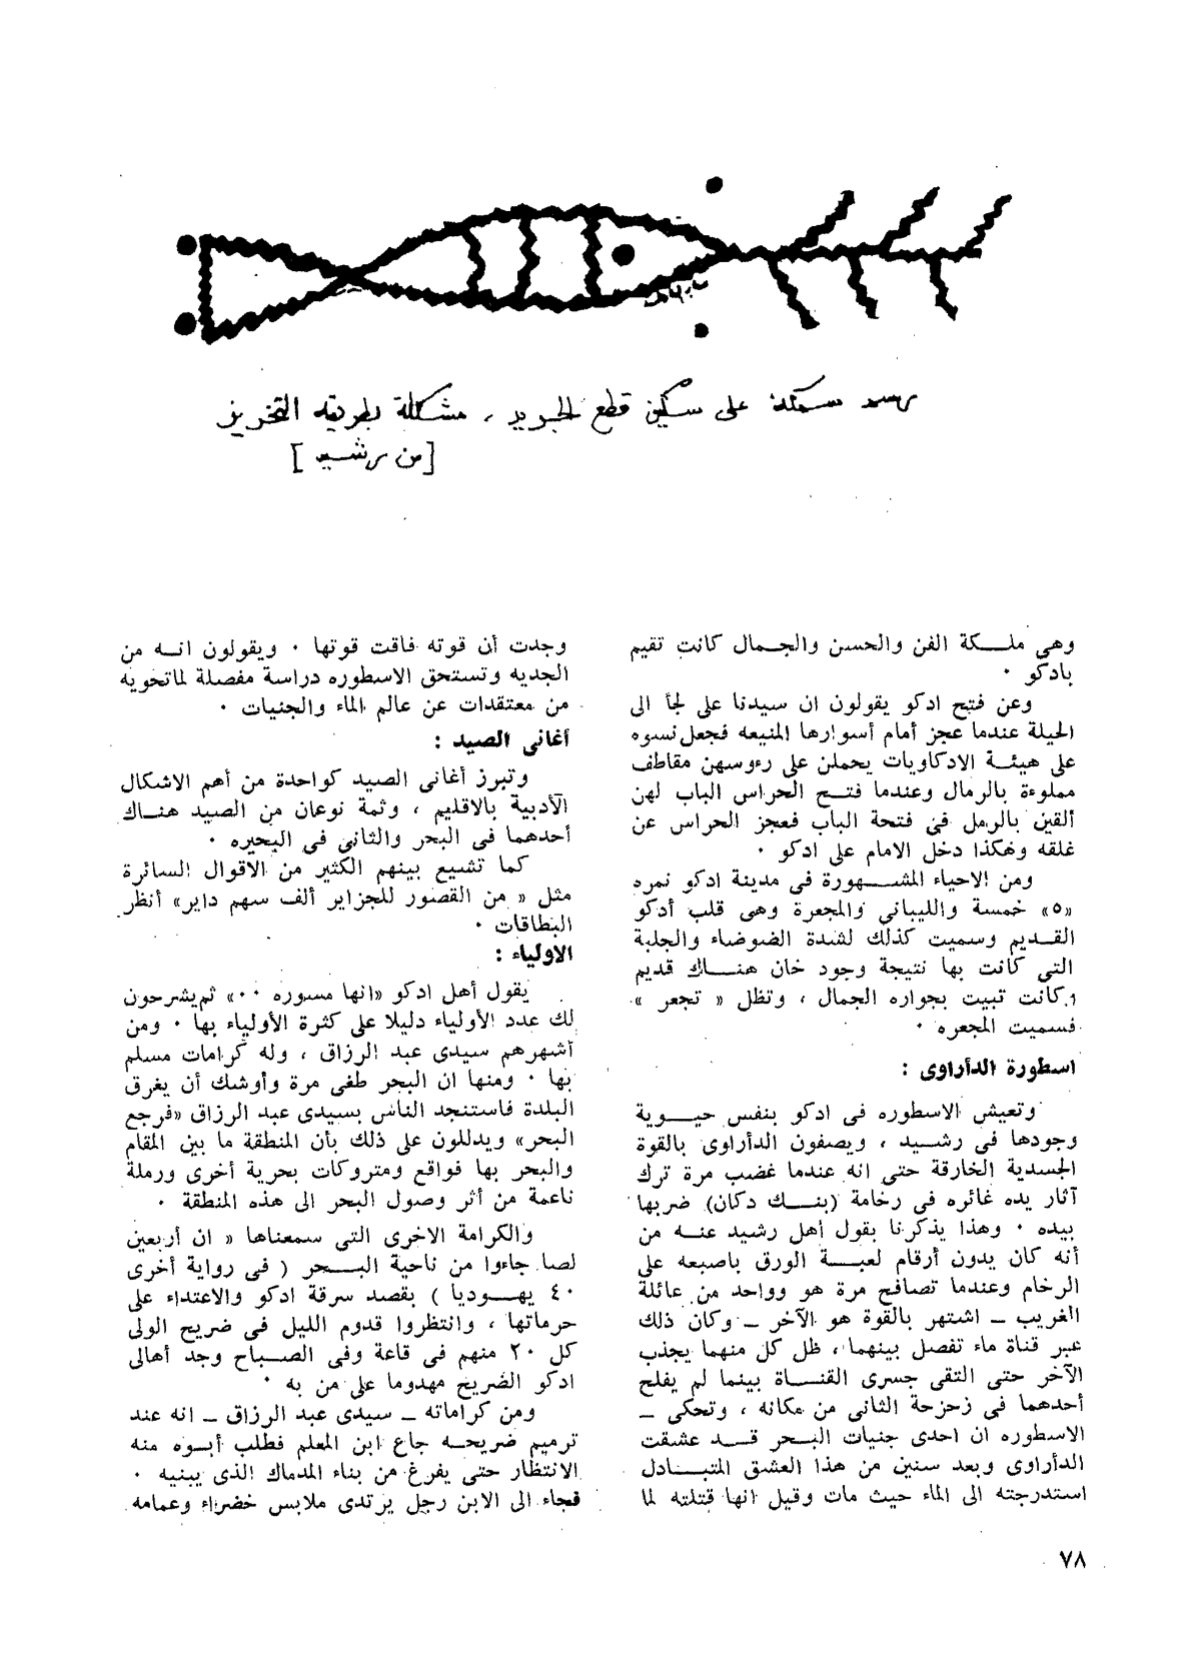 رسم سمكة على سكين قطع الجريد ، مشكلة بطريقة التخريز
[من رشيد]
وهى ملكة الفن والحسن والجمال كانت تقيم
بادكو ٠
وعن فتح ادكو يقولون ان سيدنا على لجأ الى
الحيلة عندما عجز أمام أسوارها المنيعه فجعل نسوه
على هيئة الادكاويات يحملن على رءوسهن مقاطف
مملوءة بالرمال وعندما فتح الحراس الباب لهن
ألقين بالرمل فى فتحة الباب فعجز الحراس عن
غلقه وهكذا دخل الامام على ادكو ٠
ومن الاحياء المشهورة فى مدينة ادكو نمره
«٥» خمسة والليبانى والمجعرة وهى قلب أدكو
القديم وسميت كذلك لشدة الضوضاء والجلبة
التى كانت بها نتيجة وجود خان هناك قديم
وكانت تبيت بجواره الجمال ، وتظل « تجعر »
فسميت المجعره ٠
اسطورة الدأراوى :
وتعيش الاسطوره فى ادكو بنفس حيوية
وجودها فى رشيد ، ويصفون الدأراوى بالقوة
الجسدية الخارقة حتى انه عندما غضب مرة ترك
آثار يده غائره فى رخامة (بنك دكان) ضربها
بيده ٠ وهذا يذكرنا بقول أهل رشيد عنه من
أنه كان يدون أرقام لعبة الورق باصبعه على
الرخام وعندما تصافح مرة هو وواحد من عائلة
الغريب ــ اشتهر بالقوة هو الآخر ــ وكان ذلك
عبر قناة ماء تفصل بينهما ، ظل كل منهما يجذب
الآخر حتى التقى جسرى القناة بينما لم يفلح
أحدهما فى زحزحة الثانى من مكانه ، وتحكى ــ
الاسطوره ان احدى جنيات البحر قد عشقت
الدأراوى وبعد سنين من هذا العشق المتبادل
استدرجته الى الماء حيث مات وقيل انها قتلته لما
وجدت أن قوته فاقت قوتها ٠ ويقولون انه من
الجديه وتستحق الاسطوره دراسة مفصلة لماتحويه
من معتقدات عن عالم الماء والجنيات ٠
أغانى الصيد :
وتبرز أغانى الصيد كواحدة من أهم الاشكال
الأدبية بالاقليم ، وثمة نوعان من الصيد هناك
أحدهما فى البحر والثانى فى البحيره ٠
كما تشيع بينهم الكثير من الاقوال السائرة
مثل « من القصور للجزاير ألف سهم داير» أنظر
البطاقات ٠
الاولياء :
يقول أهل ادكو «انها مسوره ٠٠» ثم يشرحون
لك عدد الأولياء دليلا على كثرة الأولياء بها ٠ ومن
أشهرهم سيدى عبد الرزاق ، وله كرامات مسلم
بها ٠ ومنها ان البحر طغى مرة وأوشك أن يغرق
البلدة فاستنجد الناس بسيدى عبد الرزاق «فرجع
البحر» ويدللون على ذلك بأن المنطقة ما بين المقام
والبحر بها قواقع ومتروكات بحرية أخرى ورملة
ناعمة من أثر وصول البحر الى هذه المنطقة ٠
والكرامة الاخرى التى سمعناها « ان أربعين
لصا جاءوا من ناحية البحر ( فى رواية أخرى
٤٠ يهوديا ) بقصد سرقة ادكو والاعتداء على
حرماتها ، وانتظروا قدوم الليل فى ضريح الولى
كل ٢٠ منهم فى قاعة وفى الصباح وجد أهالى
ادكو الضريح مهدوما على من به ٠
ومن كراماته ــ سيدى عبد الرزاق ــ انه عند
ترميم ضريحه جاع ابن المعلم فطلب أبوه منه
الانتظار حتى يفرغ من بناء المدماك الذى يبنيه ٠
فجاء الى الابن رجل يرتدى ملابس خضراء وعمامه
٧٨